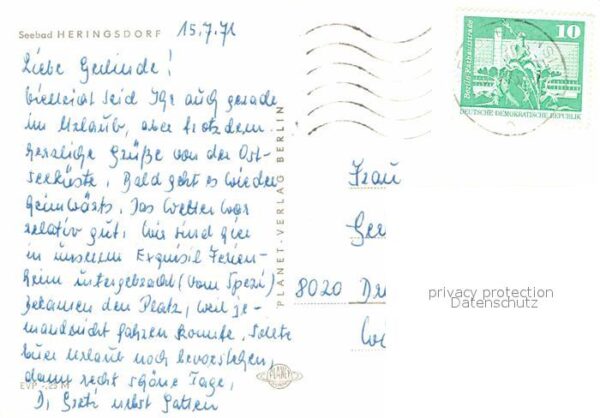 Seebad HERINGSDORF
15.7.71
Liebe Gerlinde!
Vielleicht seid Ihr auch gerade
im Urlaub, aber trotzdem
herzliche Grüße von der Ost-
seeküste. Bald geht es wieder
heimwärts. Das Wetter war
relativ gut, wir sind hier
in unserem Exquisit Ferien-
heim untergebracht (vom Spezi)
bekamen den Platz, weil je-
mand nicht fahren konnte. Sollte
euer Urlaub noch bevorstehen,
dann recht schöne Tage,
D. Gretl nebst Gatten
EVP -.25 M
PLANET-VERLAG BERLIN
PLANET
10
Berlin, Rathausstraße
DEUTSCHE DEMOKRATISCHE REPUBLIK
Frau
Ger
8020 Dre
privacy protection
Datenschutz